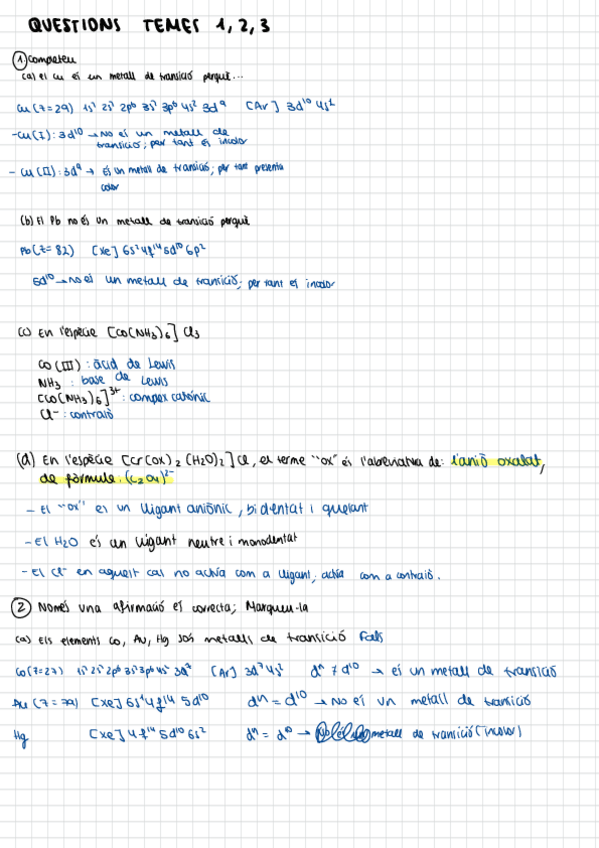 QUESTIONS TEMES 1, 2, 3
① Completeu
(a) el Cu és un metall de transició perquè...
Cu (Z=29) 1s² 2s² 2p⁶ 3s² 3p⁶ 4s² 3d⁹ [Ar] 3d¹⁰ 4s¹
- Cu(I): 3d¹⁰ → No és un metall de
transició; per tant és incolor
- Cu (II): 3d⁹ → És un metall de transició; per tant presenta
color
(b) El Pb no és un metall de transició perquè
Pb (Z=82) [Xe] 6s² 4f¹⁴ 5d¹⁰ 6p²
5d¹⁰ → no és un metall de transició; per tant és incolor
(c) En l'espècie [Co(NH₃)₆] Cl₃
Co (III) : àcid de Lewis
NH₃ : base de Lewis
[Co(NH₃)₆]³⁺ : complex catiònic
Cl⁻ : contraió
(d) En l'espècie [Cr(ox)₂(H₂O)₂] Cl, el terme "ox" és l'abreviatura de: l'anió oxalat,
de fórmula: (C₂O₄)²⁻
- El "ox" és un lligant aniònic, bidentat i quelant
- El H₂O és un lligant neutre i monodentat
- El Cl⁻ en aquest cas no actúa com a lligant; actúa com a contraió.
② Només una afirmació és correcta; Marqueu-la
(a) Els elements Co, Au, Hg són metalls de transició Fals
Co (Z=27) 1s² 2s² 2p⁶ 3s² 3p⁶ 4s² 3d⁷ [Ar] 3d⁷ 4s² dⁿ ≠ d¹⁰ → és un metall de transició
Au (Z=79) [Xe] 6s¹ 4f¹⁴ 5d¹⁰ dⁿ = d¹⁰ → No és un metall de transició
Hg [Xe] 4f¹⁴ 5d¹⁰ 6s² dⁿ = d¹⁰ → metall de transició (incolor)